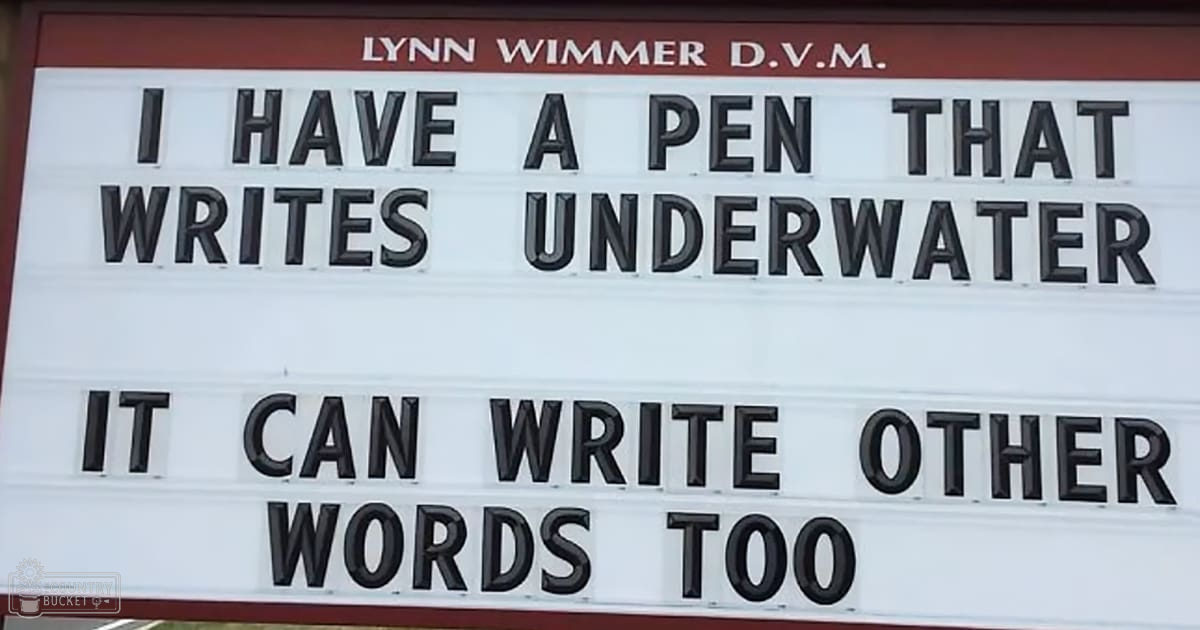 LYNN WIMMER D.V.M.
I HAVE A PEN THAT
WRITES UNDERWATER
IT CAN WRITE OTHER
WORDS TOO
COUNTRY
BUCKET